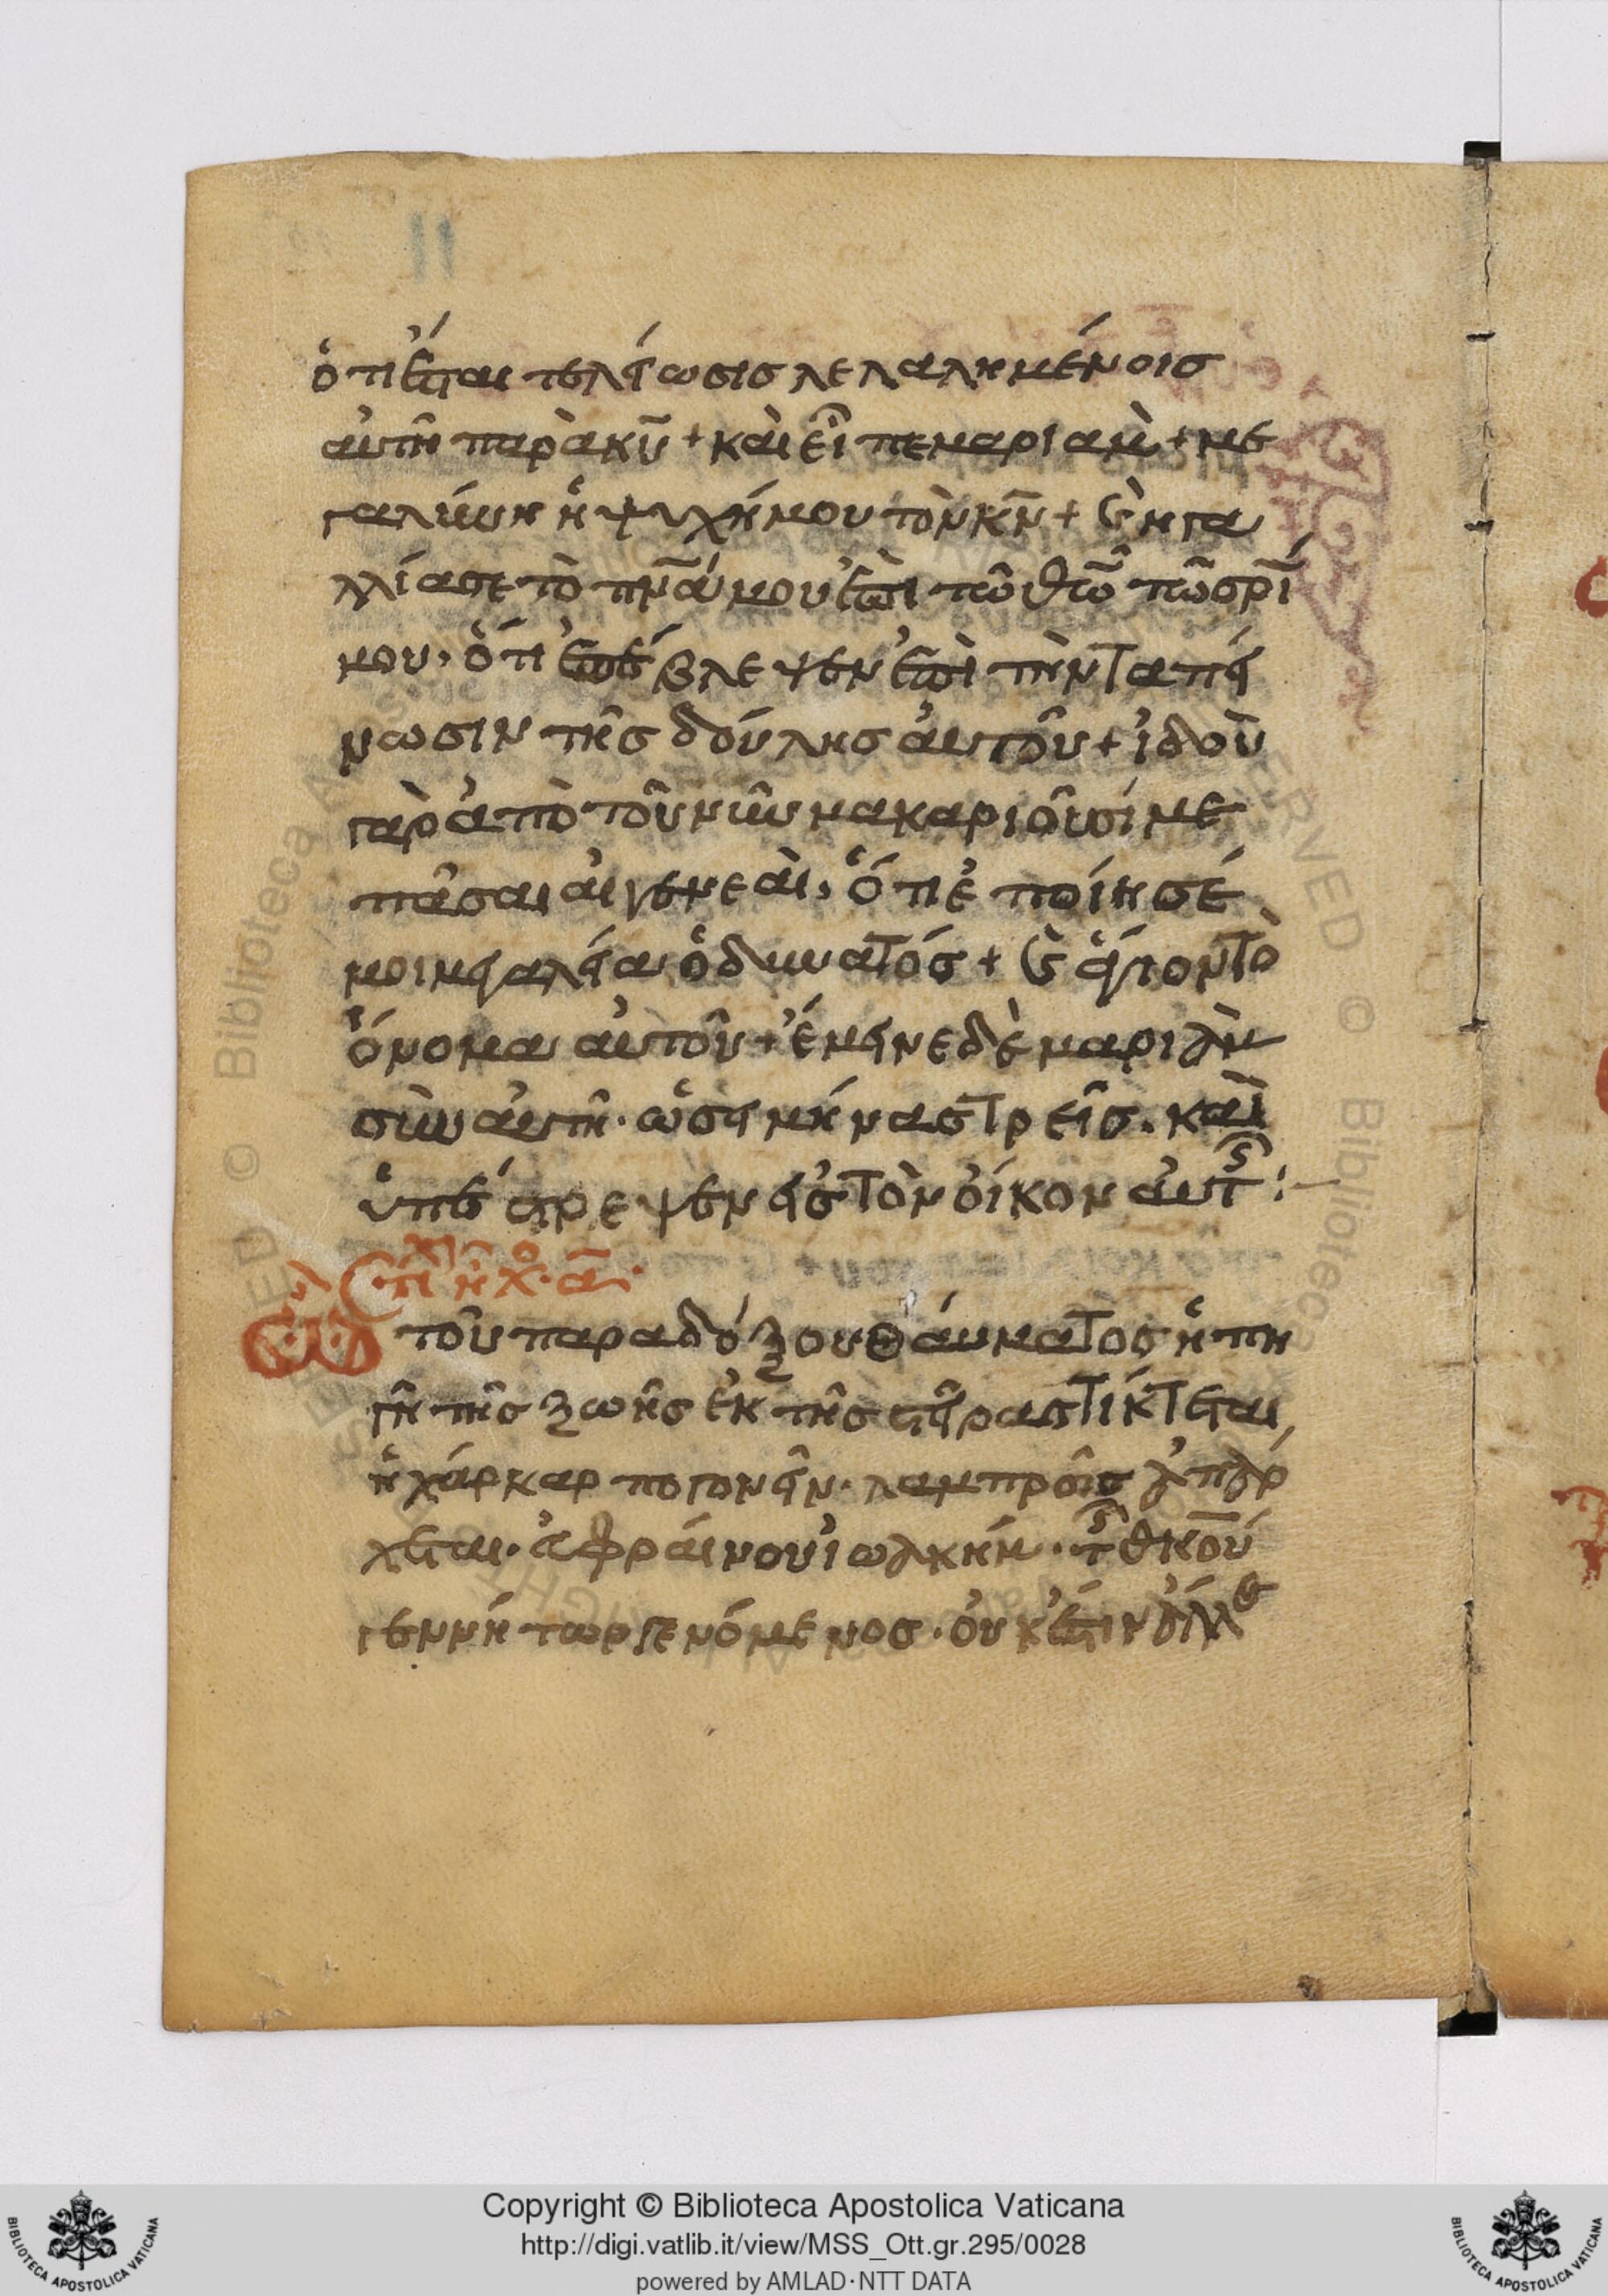 11
ὅτι ἔσται τελείωσισ λελαλημένοισ
αὐτῆ παρὰ κυ̅ + καὶ εἶπε μαριὰμ + με
γαλύνη ἡ ψυχή μου τὸν κν̅ + ϛ̀ ηγα
λλίασε τὸ πν̅α μου ἐπὶ τῶ θῶ τῶ σρί
μου, ὅτι ἐπέβλεψεν ἐπὶ τὴν ταπεί
νωσιν τῆσ δούλησ αὐτοῦ + ἰδοὺ
γὰρ ἀπὸ τοῦ νῦν μακαριοῦσί με
πᾶσαι αἱ γενεὰι, ὅτι ἐποίησέ
μοι μεγαλεία ὁ δυνατόσ + ϛ̀ ἅγιον τὸ
ὄνομα αὐτοῦ + ἔμεινε δὲ μαριὰμ
σὺν αὐτῆ. ὡσεὶ μήνασ τρεῖσ. καὶ
ὑπέστρεψεν εἰσ τὸν οἶκον αὐτ͂ς :—
τοῦ παραδόξου θάυματοσ ἡ πη
γὴ τῆσ ζωῆσ ἐκ τῆσ στείρασ τίκτεται
ἡ χάρ καρπογονεῖν. λαμπρῶσ ἀπάρ
χεται. ἀφράινου ἰωακήμ. τ͂ς θ̅κ̅ου
γεννήτωρ γενόμενοσ. οὐκ ἔστιν ἄλλος
Copyright © Biblioteca Apostolica Vaticana
http://digi.vatlib.it/view/MSS_Ott.gr.295/0028
powered by AMLAD·NTT DATA
BIBLIOTECA APOSTOLICA VATICANA
BIBLIOTECA APOSTOLICA VATICANA